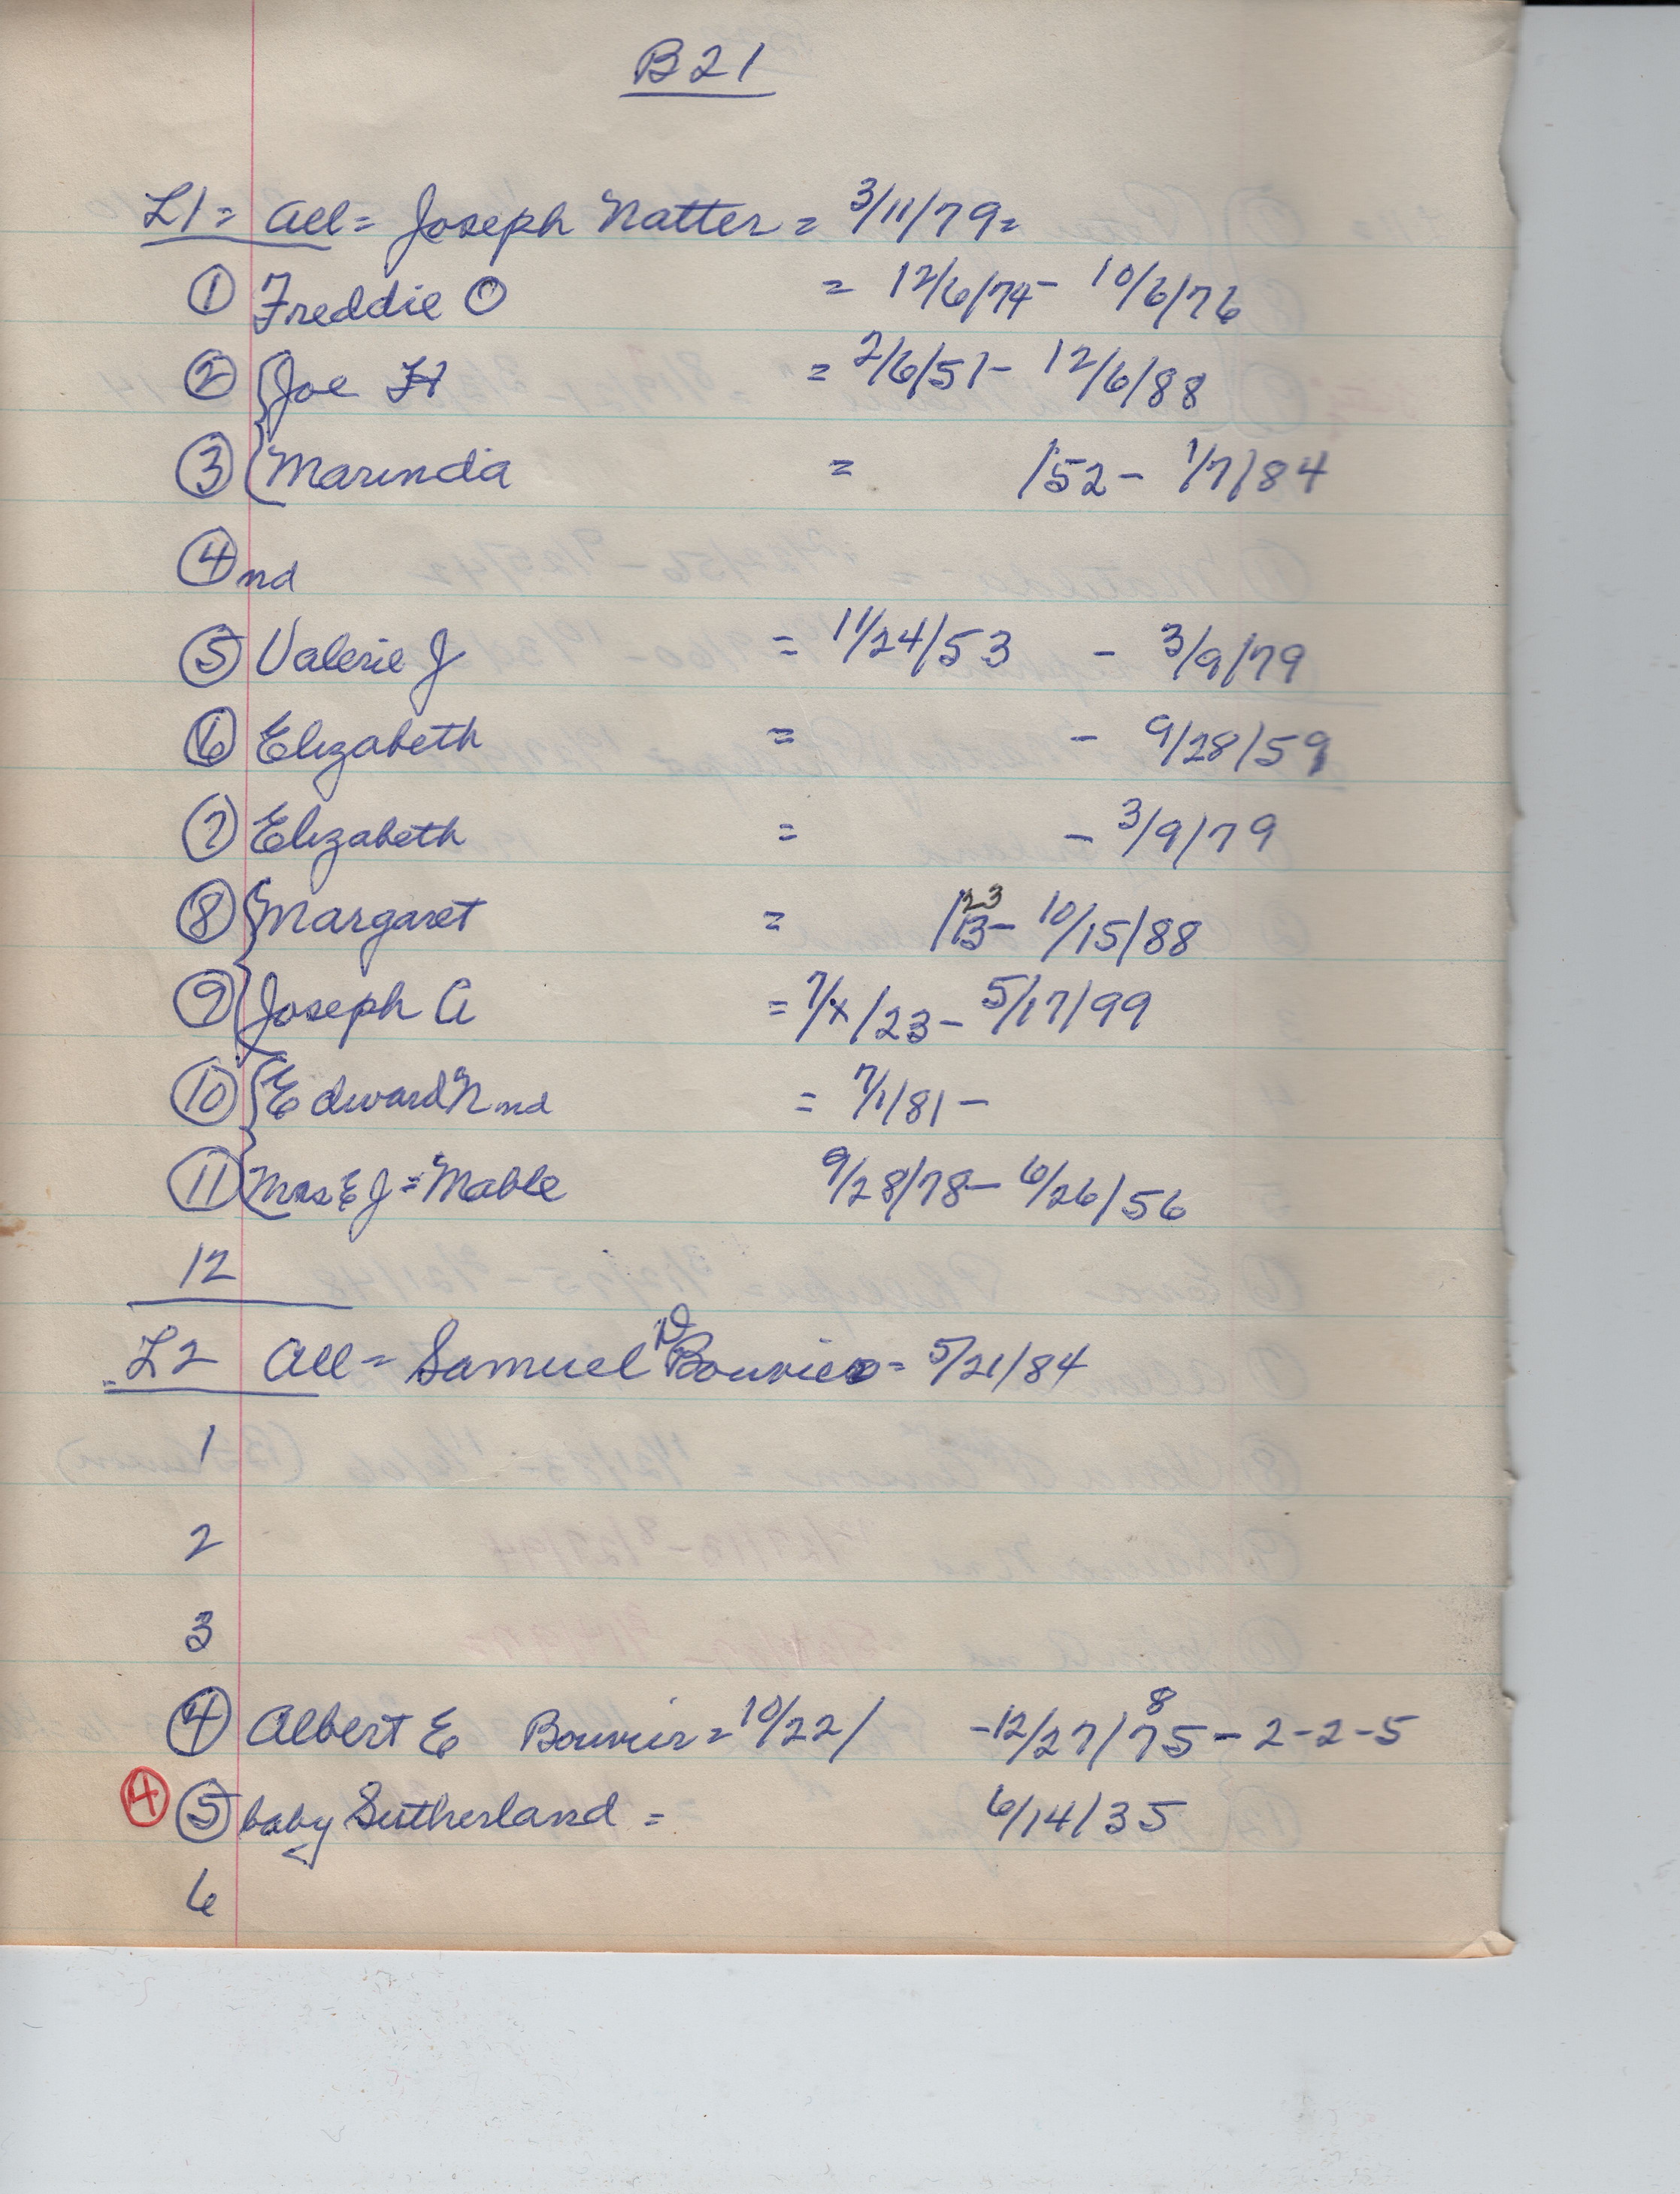 B21
L1 = all = Joseph Natter = 3/11/79 =
1 Freddie O = 12/6/74 - 10/6/76
2 Joe H = 2/6/51 - 12/6/88
3 Marinda = /52 - 1/7/84
4 nd
5 Valerie J = 11/24/53 - 3/9/79
6 Elizabeth = - 9/28/59
7 Elizabeth = - 3/9/79
8 Margaret = /23 - 10/15/88
9 Joseph A = 7/x/23 - 5/17/99
10 Edward N nd = 7/1/81 -
11 Mrs E J = Mable 9/28/78 - 6/26/56
12
L2 all = Samuel N Bouvier = 5/21/84
1
2
3
4 Albert E Bouvier = 10/22/ - 12/27/75 8 - 2-2-5
4 5 baby Sutherland = 6/14/35
6